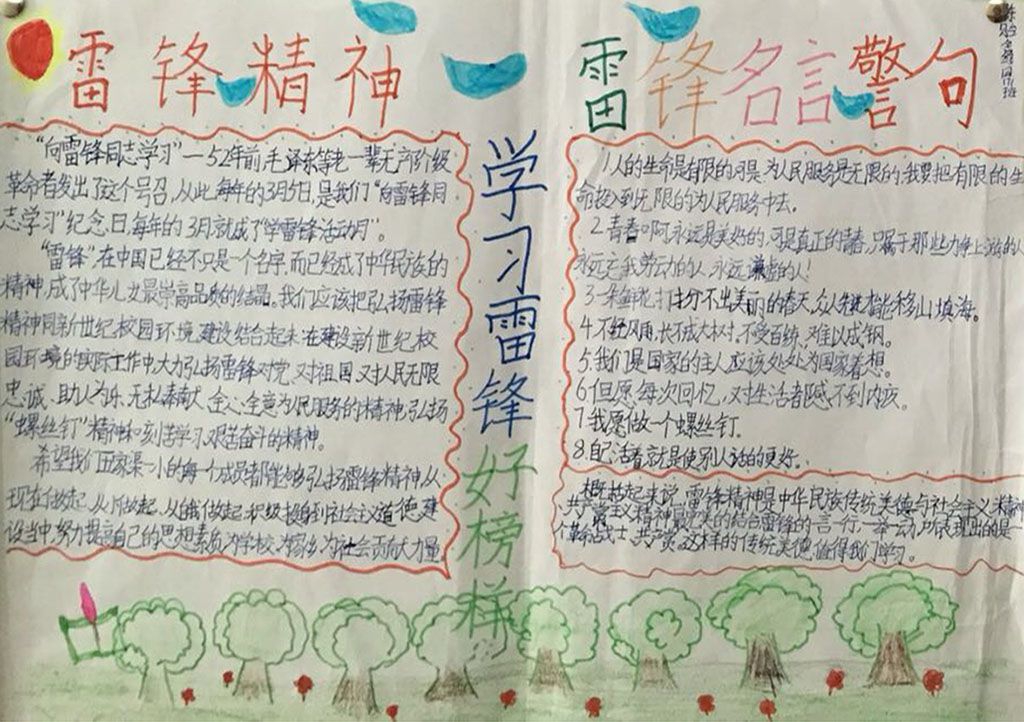 雷锋精神
“向雷锋同志学习”—52年前毛泽东等老一辈无产阶级
革命者发出了这个号召,从此每年的3月5日,是我们“向雷锋同
志学习”纪念日,每年的3月就成了“学雷锋活动月”。
“雷锋”,在中国已经不只是一个名字,而已经成了中华民族的
精神,成了中华儿女最崇高品质的结晶。我们应该把弘扬雷锋
精神同新世纪校园环境建设结合起来,在建设新世纪校
园环境的实际工作中大力弘扬雷锋对党、对祖国、对人民无限
忠诚、助人为乐、无私奉献、全心全意为人民服务的精神,弘扬
“螺丝钉”精神和刻苦学习、艰苦奋斗的精神。
希望我们五家渠一小的每一个成员都能够弘扬雷锋精神,从
现在做起,从小做起,从我做起,积极投身到社会主义道德建
设当中,努力提高自己的思想素质,为学校、为家乡、为社会贡献力量
学习雷锋好榜样
雷锋名言警句
1人的生命是有限的,可是,为人民服务是无限的,我要把有限的生
命投入到无限的为人民服务中去。
2.青春啊,永远是美好的,可是真正的青春,只属于那些力争上游的人
永远 劳动的人,永远谦虚的人!
3一朵鲜花打扮不出美丽的春天,众人 才能移山填海。
4.不经风雨,长不成大树,不受百练,难以成钢。
5.我们是国家的主人,应该处处为国家着想。
6但愿每次回忆,对生活都感不到内疚。
7.我愿做一个螺丝钉.
8.自己活着,就是使别人活的更好。
概括起来说,雷锋精神是中华民族传统美德与社会主义精神
共产主义精神最完美的结合,雷锋的一言一行,一举一动,所表现出的是一
个革命战士、共产党 这样的传统美德,值得我们学习。